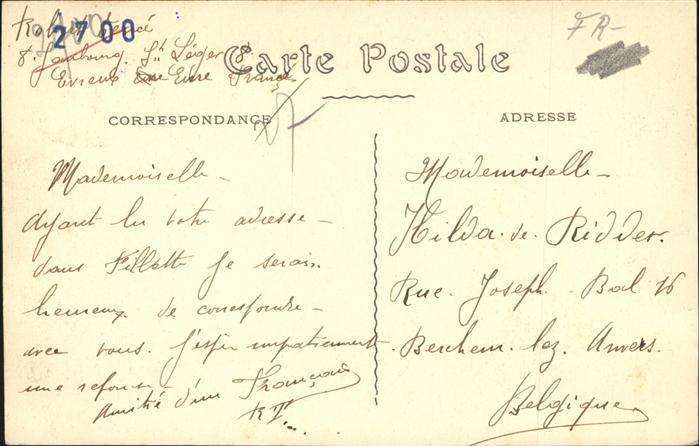 Robert
2700
8. Faubourg. St Léger
Evreux Eure France
FR-
Carte Postale
CORRESPONDANCE
ADRESSE
Mademoiselle -
Ayant lu votre adresse -
dans Fillette je serais
heureux de correspondre -
avec vous. J'espère impatiemment
une reponse -
Amitié d'un Français
Mademoiselle -
Hilda. de. Ridder.
Rue. Joseph. Bal 76
Berchem. lez. Anvers.
Belgique